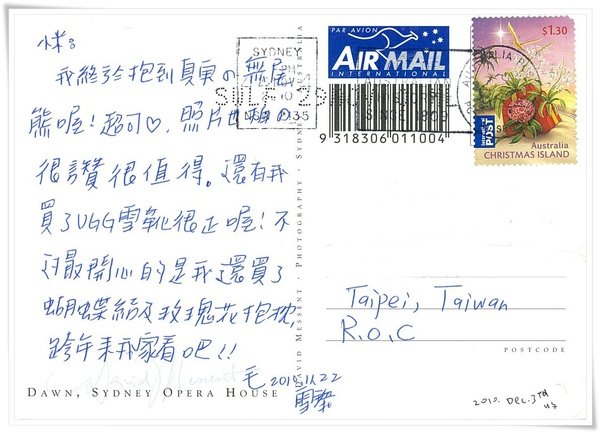 我終於抱到真實の無尾
熊喔!超可♡,照片也拍の
很讚很值得。還有我
買了UGG雪靴很正喔!不
過最開心的是我還買了
蝴蝶結及玫瑰花抱枕,
跨年來我家看吧!!
毛 2010.11.22
雪梨
DAWN, SYDNEY OPERA HOUSE
DAVID MESSENT · PHOTOGRAPHY · SYDNEY · AUSTRALIA
SYDNEY
PAR AVION
AIR MAIL
INTERNATIONAL
9 318306 011004
$1.30
POST
Australia
CHRISTMAS ISLAND
Taipei, Taiwan
R.O.C
POSTCODE
2010. Dec. 3rd